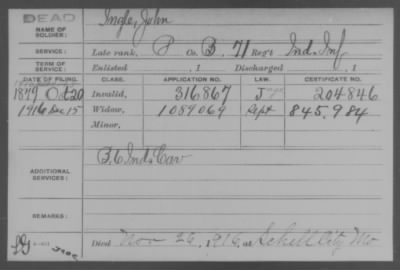 DEAD
NAME OF SOLDIER: Ingle, John
SERVICE: Late rank, P Co. B, 71 Reg't Ind. Inf
TERM OF SERVICE: Enlisted , 1 Discharged , 1
DATE OF FILING. CLASS. APPLICATION NO. LAW. CERTIFICATE NO.
1879 Oct 20 Invalid, 316867 204846
1916 Dec 15 Widow, 1089069 Sept 845,984
Minor,
ADDITIONAL SERVICES: B. 6 Ind. Cav
REMARKS:
Died Nov 26, 1916, at Schell City Mo